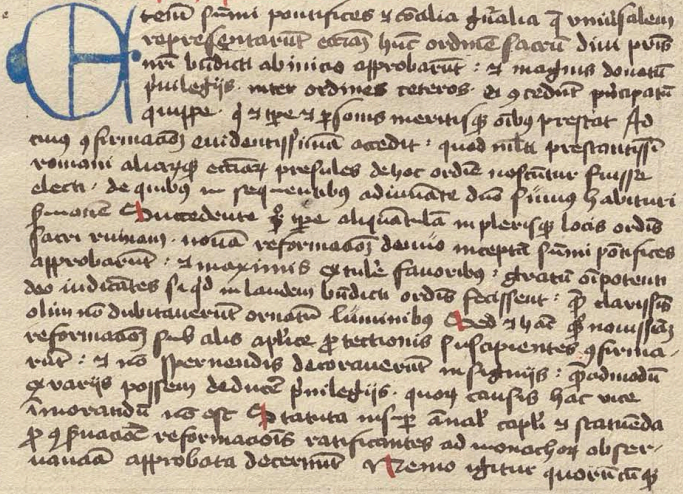 Etenim sũmi pontifices ⁊ cõcilia gñralia q̃ vniũsalem
representarũt eccãm hũc ordinẽ sacrũ diui pr̃is
nr̃i bñdicti ab inicio approbarũt : ⁊ magnis donatũ
p̱uilegijs · inter ordines ceteros · ei ꝯcedũt p̱ncipatũ
quippe · q̱ ⁊ tp̱e ⁊ p̱sonis meritisq̱ oĩbus prestat Ad
cuius ꝯfirmacõẽ euidentissimã accedit : quod mlti prestantissĩ
romani aliarũq̱ eccãrꝫ presules de hoc ordiẽ noscũtur fuisse
electi · de quibus in sequentibus adiuuãte dño sumus habituri
Succedente ꝟo tp̱e aliquãtulã in plerisq̱ locis ordĩs
sacri ruinam · nouã reformacõẽ denuo inceptã sũmi põtifices
approbarũt : ⁊ maximis extulẽre fauoribus : gratũ oĩpotenti
deo iudicãtes si qd in laudem bñdicti ordĩs fecissent : q̃ clarissĩs
olim nõ dubitauerũt ornatũ luminibus Sed ⁊ hãc q̱ nouissimã
reformacõẽ sub alis aplice ꝓtectionis suscipientes ꝯfirma-
rũt : ⁊ nõ spernendis decorauerũt insignijs : q̃admodũ
ex varijs possem deducẽ p̱uilegijs · quoꝝ causis hac vice
ĩmorandũ nõ est Statuta insup̱ ãnal' capli ⁊ statuẽda
ꝓ ꝯseruacõẽ reformacõĩs ratificantes ad monachoꝝ obser-
uanciã approbata decernũt Nemo igitur quorũcũq̱